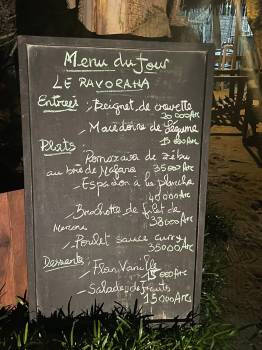 Menu du Jour
LE RAVORAHA
Entrées - Beignet de crevette
20 000 Arc
- Macédoine de légume
15 000 Arc
Plats - Romazava de zébu
au brède Mafana 35000 Arc
- Espadon à la plancha
40000 Arc
- Brochette de filet de
Mérou 38000 Arc
- Poulet sauce curry
35000 Arc
Desserts - Flan Vanille
15 000 Arc
- Salade de fruits
15 000 Arc